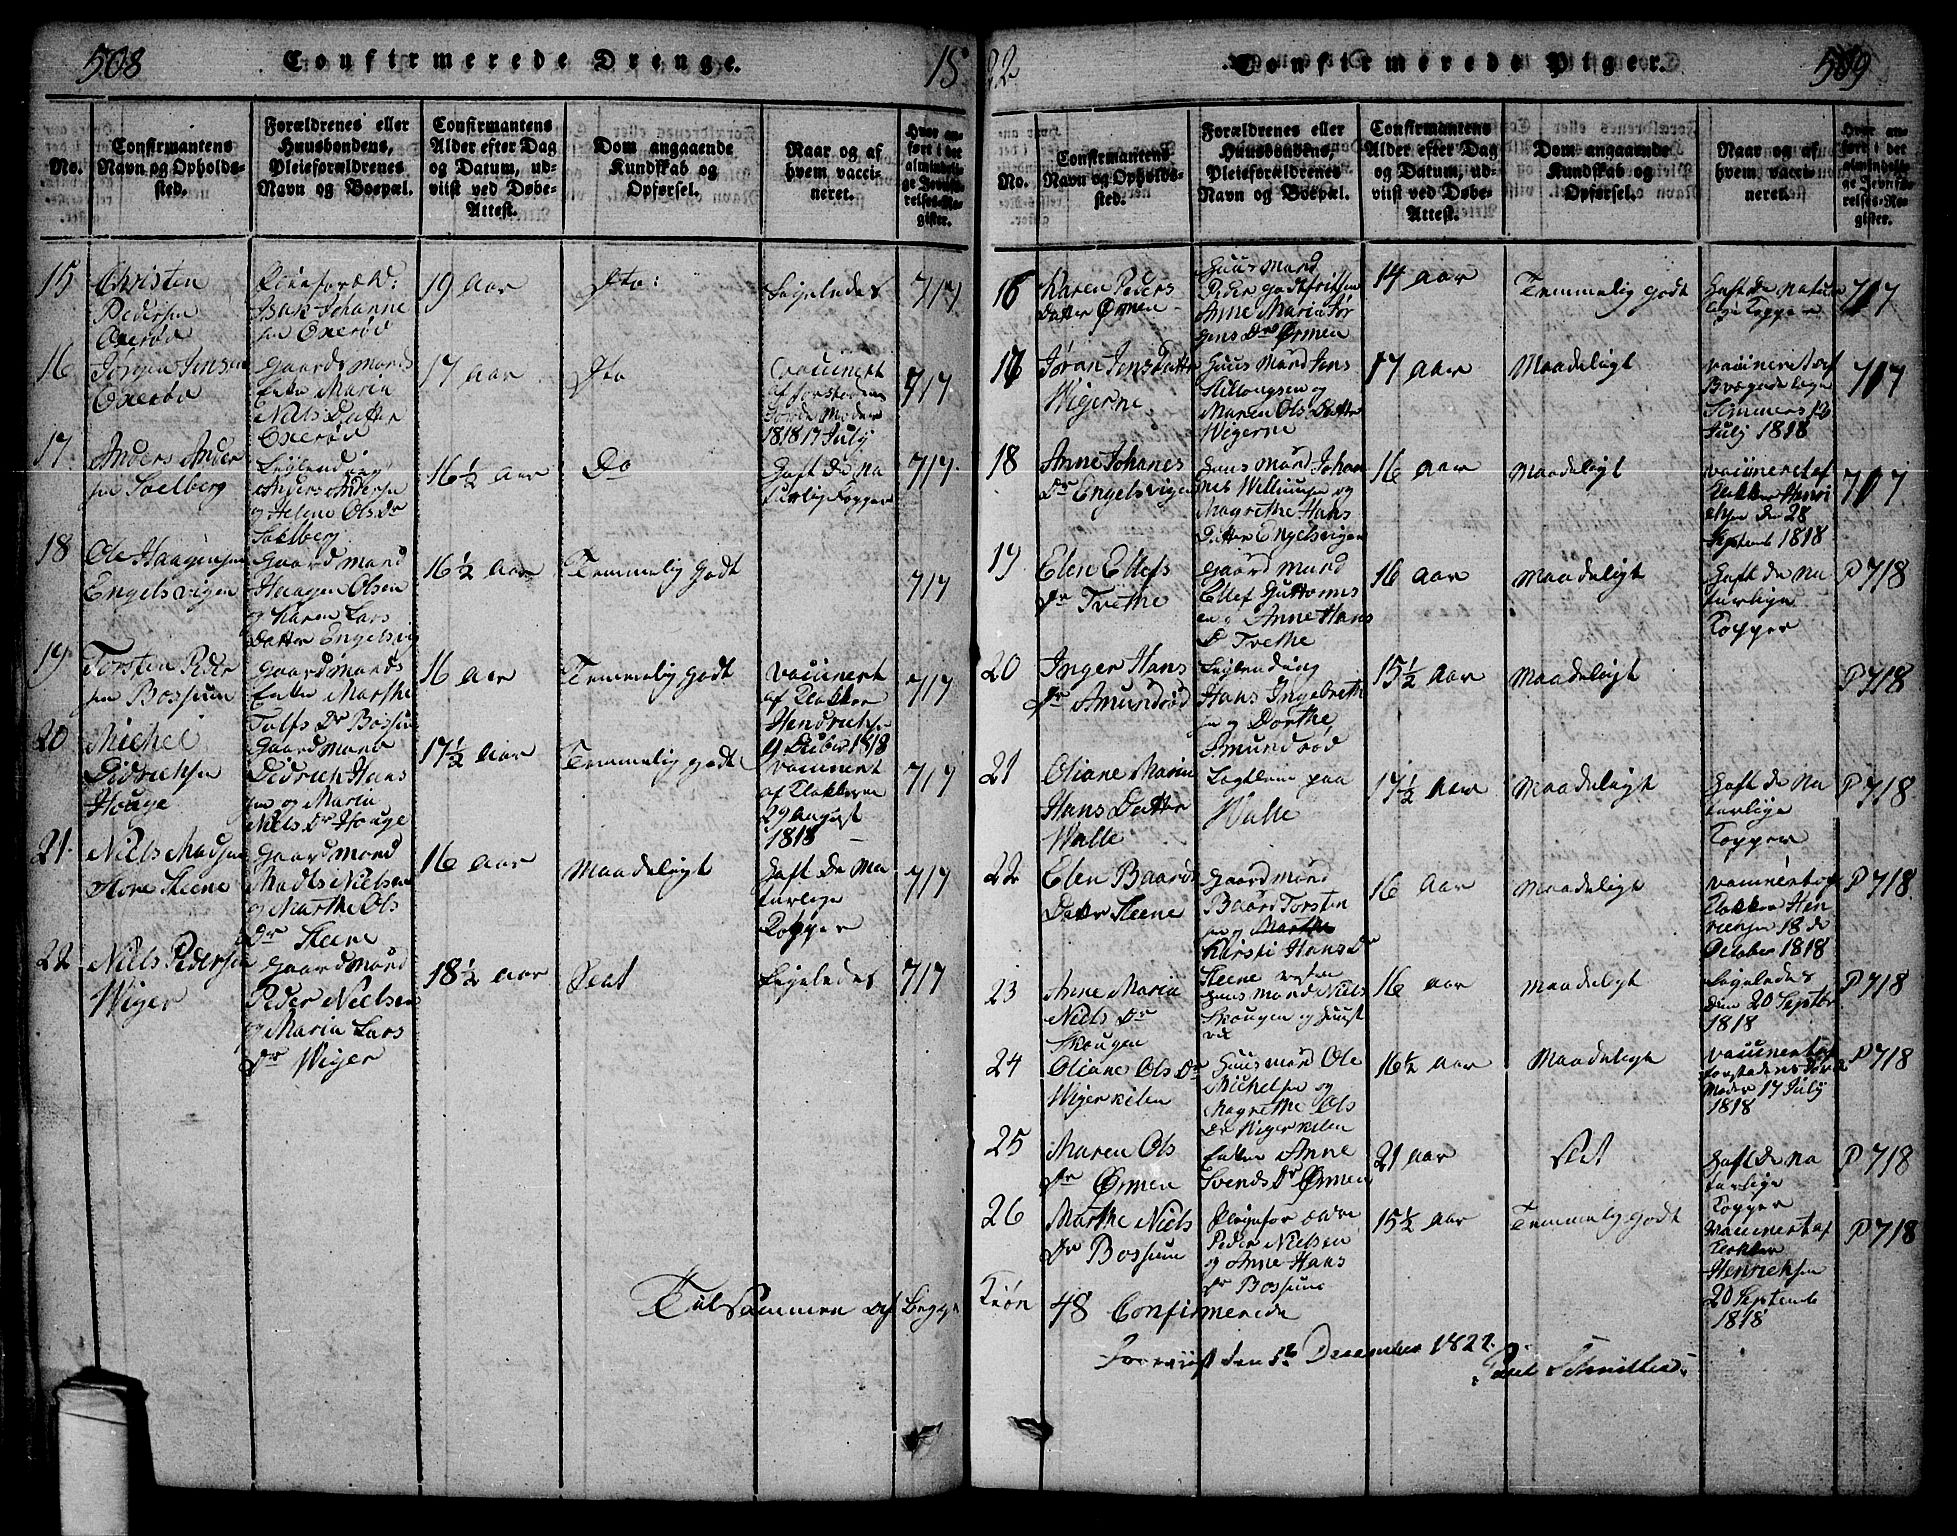 508 Confirmerede Drenge. 18
No.
Confirmantens Navn og Opholdssted.
Forældrenes eller Huusbondens, Pleieforældrenes Navn og Boepæl.
Confirmantens Alder efter Dag og Datum, udviist ved Døbe-Attest.
Dom angaaende Kundskab og Opførsel.
Naar og af hvem vaccineret.
Hvor anført i det almindelige Jevnførelses-Register.
15 Christen Pedersen Oxerød
Isak Johannesen Oxerød
19 aar
Dto:
Ligeledes
717
16 Jørgen Jensen Oxerød
Gaardmands Enke Maria Niels Datter Oxerød
17 aar
Dto
Vaccinert af Jordemoder 1818 17 July
717
17 Anders Andersen Soelberg
Anders Andersen og Helene Ols Dr Soelberg
16½ aar
Do
Haft de naturlige Kopper
717
18 Ole Haagensen Engelsvigen
Gaardmand Haagen Olsen og Karen Lars Datter Engelsvig
16½ aar
Temmelig godt
717
19 Torsten Pedersen Bossum
Gaardmands Enke Marthe Tolfs Dr Bossum
16 aar
Temmelig godt
vaccinert af Klokker Hendrichs 1818
717
20 Michel Didrichsen Houge
Gaardmand Didrich Hansen og Maria Niels Dr Houge
17½ aar
Temmelig godt
vaccinert af Klokkeren 29 August 1818
717
21. Niels Madsen Store Steene
Gaardmand Madts Nielsen og Marthe Ols Dr Steene
16 aar
Maadeligt
Haft de naturlige Kopper
717
22 Niels Pedersen Wiger
Gaardmand Peder Nielsen og Maria Lars Dr Wiger
18½ aar
Slet
Ligeledes
717
Tilsammen af begge
22 Confirmerede Piger. 509
No.
Confirmantens Navn og Opholdssted.
Forældrenes eller Huusbondens, Pleieforældrenes Navn og Boepæl.
Confirmantens Alder efter Dag og Datum, udviist ved Døbe-Attest.
Dom angaaende Kundskab og Opførsel.
Naar og af hvem vaccineret.
Hvor anført i det almindelige Jevnførelses-Register.
16 Karen Peders Datter Ørmen
Huusmand Peder Godtfritsen Anne Maria Jørgens Dr Ørmen
14 aar
Temmelig godt
Haft de naturlige Kopper
717
17 Jøran Jens Datter Wigerne
Huusmand Jens og Maren Ols Datter Wigerne
17 aar
Maadeligt
vaccineret af July 1818
717
18 Anne Johanes Dr Engelsvigen
Huusmand Johannes Willumsen og Magrethe Hans Datter Engelsvigen
16 aar
Maadeligt
vaccineret af Klokker Henrichsen den 28 Septemb 1818
717
19 Elen Ellefs Dr Trethe
Gaardmand Ellef Guttormsen og Anne Hans D Trethe
16 aar
Maadeligt
Haft de naturlige Kopper
P 718
20 Inger Hans Dr Amundrød
Hans Ingebrethsen og Dorthe, Amundrød
15½ aar
Maadeligt
P 718
21 Oliane Maria Hans Datter Walle
paa Walle
17½ aar
Maadeligt
Haft de naturlige Kopper
P 718
22 Elen Baards Datter Steene
Gaardmand Baard Torstensen og Kirsti Hans Dr Steene
16 aar
Maadeligt
vaccinert af Klokker Henrichsen 18 de October 1818
P 718.
23 Anne Maria Niels Dr Skougen
Huusmand Niels Skougen og Hustru
16 aar
Maadeligt
Ligeledes den 20 Septbr 1818
P 718
24 Oliane Ols Dr Wigerkilen
Huusmand Ole Michelsen og Magrethe Ols Dr Wigerkilen
16½ aar
Maadeligt
vaccinert af Jordemoder 17 July 1818
P 718
25 Maren Ols Dr Ørmen
Enke Anne Svends Dr Ørmen
21 aar
Slet
Haft de naturlige Kopper
P 718
26 Marthe Niels Dr Bossum
Pleieforældre Peder Nielsen og Anne Hans Dr Bossum
15½ aar
Temmelig godt
Vaccinert af Klokker Henrichsen 20 Septemb 1818
P 718
Kiøn 48 Confirmerede
den December 1822.